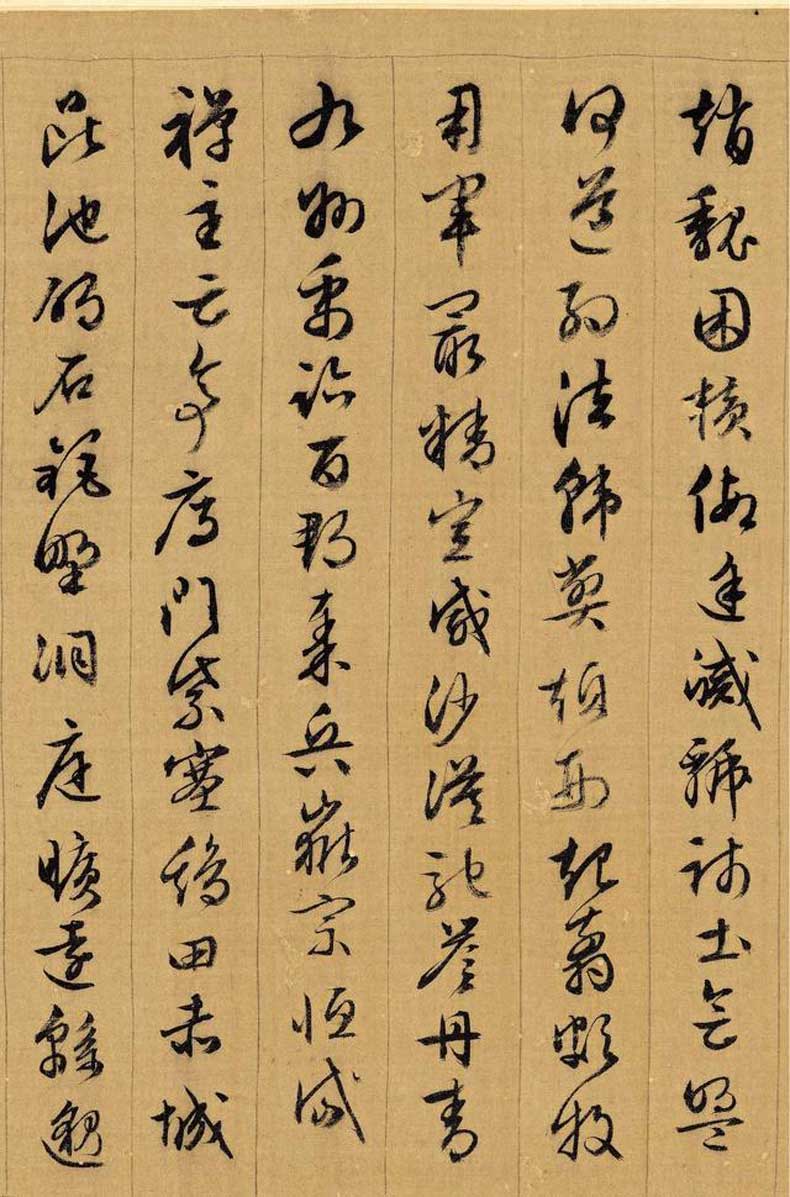 趙魏困橫假途滅虢踐土會盟
何遵約法韓弊煩刑起翦頗牧
用軍最精宣威沙漠馳譽丹青
九州禹跡百郡秦并嶽宗恒岱
禪主云亭雁門紫塞雞田赤城
昆池碣石鉅野洞庭曠遠緜邈